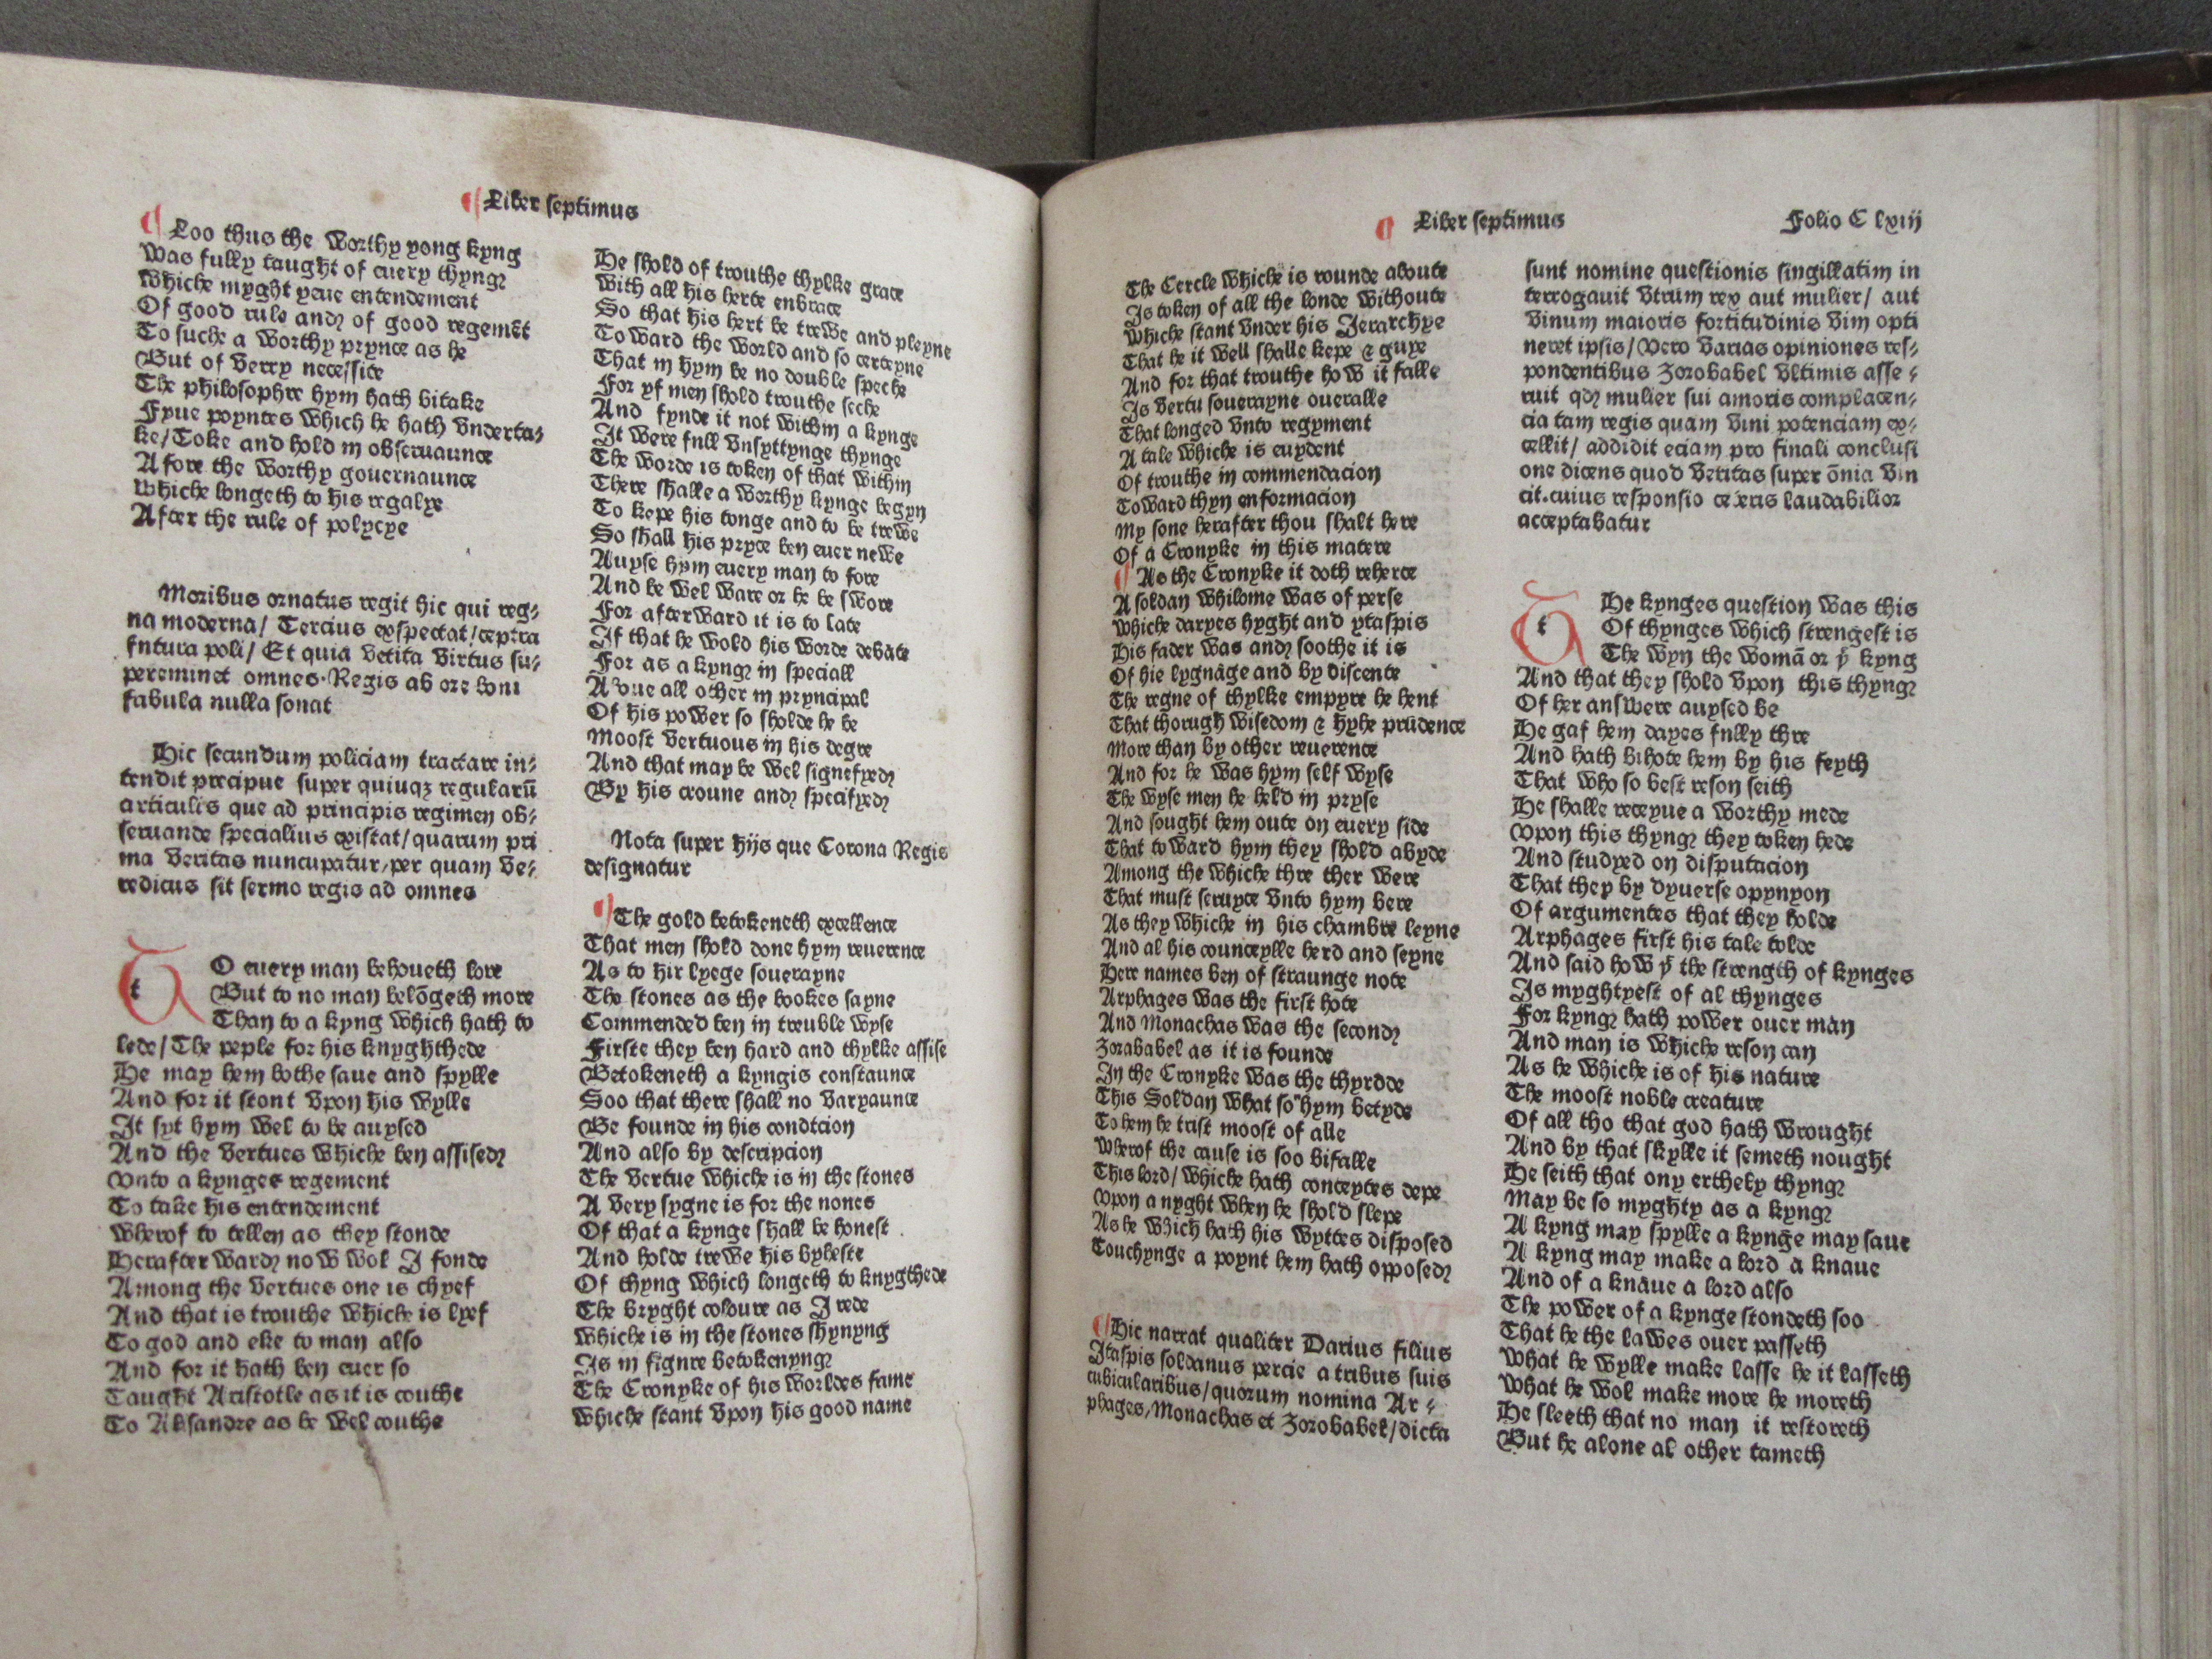 ¶ Liber septimus
¶ Loo thus the worthy yong kyng
Was fully taught of euery thyng
Whiche myght yeue entendement
Of good rule and of good regemēt
To suche a worthy prynce as he
But of verry necessite
The philosophre hym hath bitake
Fyue poyntes which he hath vnderta⸗
ke/Toke and hold in obseruaunce
A fore the worthy gouernaunce
Whiche longeth to his regalye
After the rule of polycye
Moribus ornatus regit hic qui reg⸗
na moderna/ Tercius expectat/ceptra
fntura poli/ Et quia vetita virtus su⸗
pereminet omnes·Regis ab ore boni
fabula nulla sonat
Hic secundum policiam tractare in⸗
tendit precipue super quinqꝫ regularū
articulis que ad principis regimen ob⸗
seruande specialius existat/quarum pri
ma veritas nuncupatur,per quam ve⸗
redicus sit sermo regis ad omnes
TO euery man behoueth lore
But to no man belōgeth more
Than to a kyng which hath to
lede/The peple for his knyghthede
He may hem bothe saue and spylle
And for it stont vpon his wylle
It syt hym wel to be auysed
And the vertues whiche ben assised
Vnto a kynges regement
To take his entendement
Wherof to tellen as they stonde
Herafterward now wol I fonde
Among the vertues one is chyef
And that is trouthe whiche is lyef
To god and eke to man also
And for it hath ben euer so
Taught Aristotle as it is couthe
To Alisandre as he wel couthe
He shold of trouthe thylke grace
With all his herte enbrace
So that his hert be trewe and pleyne
Toward the world and so certeyne
That in hym be no double speche
For yf men shold trouthe seche
And fynde it not within a kynge
It were fnll vnsyttynge thynge
The worde is token of that within
There shalle a worthy kynge begyn
To kepe his tonge and to be trewe
So shall his pryce ben euer newe
Auyse hym euery man to fore
And be wel ware or he be swore
For afterward it is to late
If that he wold his worde debate
For as a kyng in speciall
Aboue all other in pryncipal
Of his power so sholde he be
Moost vertuous in his degre
And that may be wel signefyed
By his croune and specifyed
Nota super hijs que Corona Regis
designatur
¶ The gold betokeneth excellence
That men shold done hym reuerence
As to hir lyege souerayne
The stones as the bookes sayne
Commended ben in treuble wyse
Firste they ben hard and thylke assise
Betokeneth a kyngis constaunce
Soo that there shall no varyaunce
Be founde in his condicion
And also by descripcion
The vertue whiche is in the stones
A very sygne is for the nones
Of that a kynge shall be honest
And holde trewe his byheste
Of thyng which longeth to knygthede
The bryght coloure as I rede
Whiche is in the stones shynyng
Is in fignre betokenyng
The Cronyke of his worldes fame
Whiche stant vpon his good name
¶ Liber septimus
Folio C lxiij
The Cercle whiche is rounde aboute
Is token of all the londe withoute
Whiche stant vnder his Ierarchye
That he it well shalle kepe & guye
And for that trouthe how it falle
Is vertu souerayne oueralle
That longed vnto regyment
A tale whiche is euydent
Of trouthe in commendacion
Toward thyn enformacion
My sone herafter thou shalt here
Of a Cronyke in this matere
¶ As the Cronyke it doth reherce
A soldan whilome was of perse
Whiche daryes hyght and ytaspis
His fader was and soothe it is
Of hie lygnage and by discente
The regne of thylke empyre he hent
That thorugh wisedom & hyhe prudence
More than by other reuerence
And for he was hym self wyse
The wyse men he held in pryse
And sought hem oute on euery side
That toward hym they shold abyde
Among the whiche thre ther were
That must seruyce vnto hym bere
As they whiche in his chambre leyne
And al his counceylle herd and seyne
Here names ben of straunge note
Arphages was the first hote
And Monachas was the second
Zorababel as it is founde
In the Cronyke was the thyrdde
This Soldan what so hym betyde
To hem he trist moost of alle
Wherof the cause is soo bifalle
This lord/ whiche hath conceytes depe
Vpon a nyght when he shold slepe
As he which hath his wyttes disposed
Touchynge a poynt hem hath opposed
¶ Hic narrat qualiter Darius filius
Itaspis soldanus percie a tribus suis
cubicularibus/quorum nomina Ar⸗
phages,Monachas et Zorobabel/dicta
sunt nomine questionis singillatim in
terrogauit vtrum rex aut mulier/ aut
vinum maioris fortitudinis vim opti
neret ipsis/vero varias opiniones res⸗
pondentibus Zorobabel vltimis asse⸗
ruit qd mulier sui amoris complacen⸗
cia tam regis quam vini potenciam ex⸗
cellit/ addidit eciam pro finali conclusi
one dicens quod veritas super ōnia vin
cit.cuius responsio ceteris laudabilior
acceptabatur
THe kynges question was this
Of thynges which strengest is
The wyn the womā or yͤ kyng
And that they shold vpon this thyng
Of her answere auysed be
He gaf hem dayes fnlly thre
And hath bihote hem by his feyth
That who so best reson seith
He shalle receyue a worthy mede
Vpon this thyng they token hede
And studyed on disputacion
That they by dyuerse opynyon
Of argumentes that they holde
Arphages first his tale tolde
And said how yͭ the strength of kynges
Is myghtyest of al thynges
For kyng hath power ouer man
And man is whiche reson can
As he whiche is of his nature
The moost noble creature
Of all tho that god hath wrought
And by that skylle it semeth nought
He seith that ony erthely thyng
May be so myghty as a kyng
A kyng may spylle a kynge may saue
A kyng may make a lord a knaue
And of a knaue a lord also
The power of a kynge stondeth soo
That he the lawes ouer passeth
What he wylle make lasse he it lasseth
What he wol make more he moreth
He sleeth that no man it restoreth
But he alone al other tameth